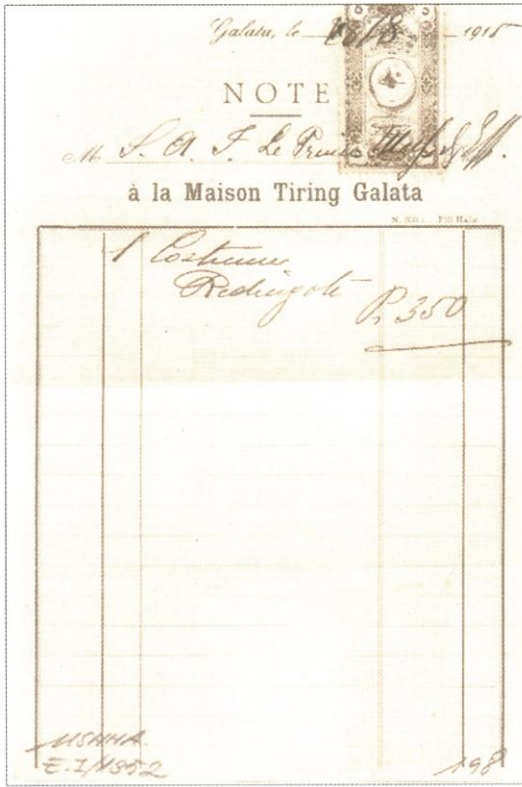 Galata, le 18/8 1915
NOTE
M S. A. I. Le Prince
à la Maison Tiring Galata
1 Costume
Redingote
P. 350
MSHHA.
E.I/1352
198